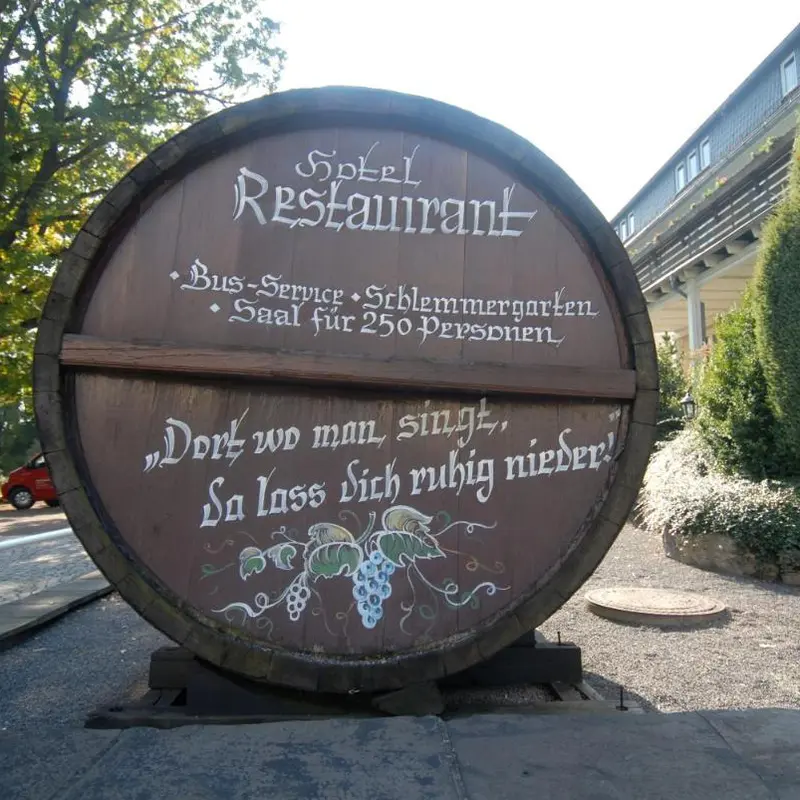 Hotel
Restaurant
• Bus-Service • Schlemmergarten
• Saal für 250 Personen
„Dort wo man singt,
da lass dich ruhig nieder!"